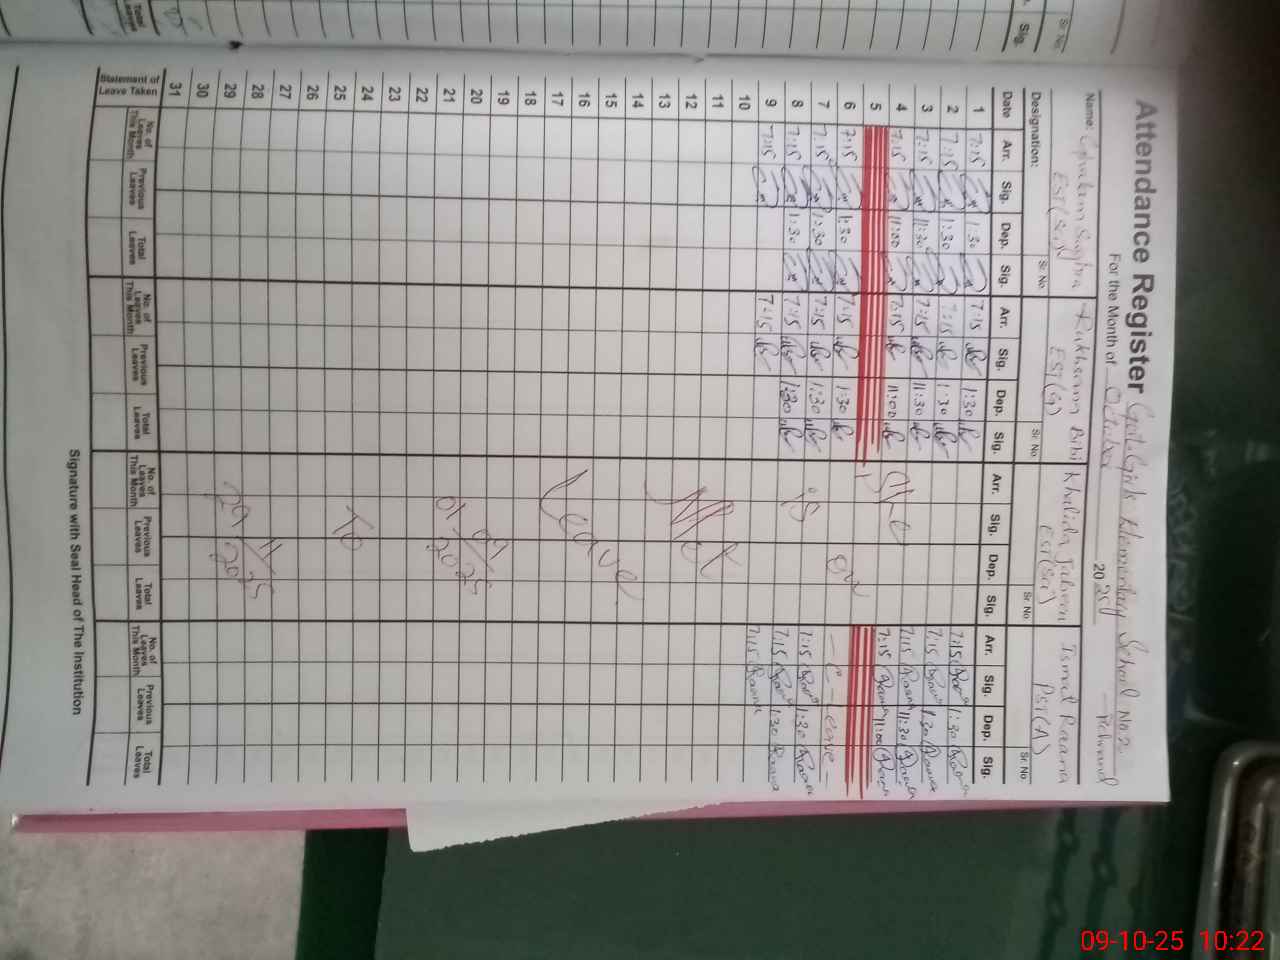 Attendance Register Govt. Girls Elementary School No.2
For the Month of October 2025
Name: Rukhsana Bibi Khalida Jabeen Ismat Raana
Designation: EST(Sci) Sr. No. EST(G) Sr. No. EST(Sci) Sr. No. PST(A) Sr. No.
Date Arr. Sig. Dep. Sig. Arr. Sig. Dep. Sig. Arr. Sig. Dep. Sig. Arr. Sig. Dep. Sig.
1 7:15 1:30 7:15 1:30 7:15 Raana 1:30 Raana
2 7:15 1:30 7:15 1:30 7:15 Raana 1:30 Raana
3 7:15 11:30 7:15 11:30 7:15 Raana 11:30 Raana
4 7:15 11:00 7:15 11:00 She 7:15 Raana 11:00 Raana
5
6 7:15 1:30 7:15 1:30 on - C - Leave -
7 7:15 1:30 7:15 1:30 7:15 Raana 1:30 Raana
8 7:15 1:30 7:15 1:30 is 7:15 Raana 1:30 Raana
9 7:15 7:15 7:15 Raana
10
11
12 Met
13
14
15
16 Leave
17
18
19
20 01/09/2025
21
22
23
24
25 To
26
27
28 29/11/2025
29
30
31
Statement of Leave Taken
No. of Leaves This Month Previous Leaves Total Leaves No. of Leaves This Month Previous Leaves Total Leaves No. of Leaves This Month Previous Leaves Total Leaves No. of Leaves This Month Previous Leaves Total Leaves
Signature with Seal Head of The Institution
Sr. No.
Sig.
Total Leaves
09-10-25 10:22